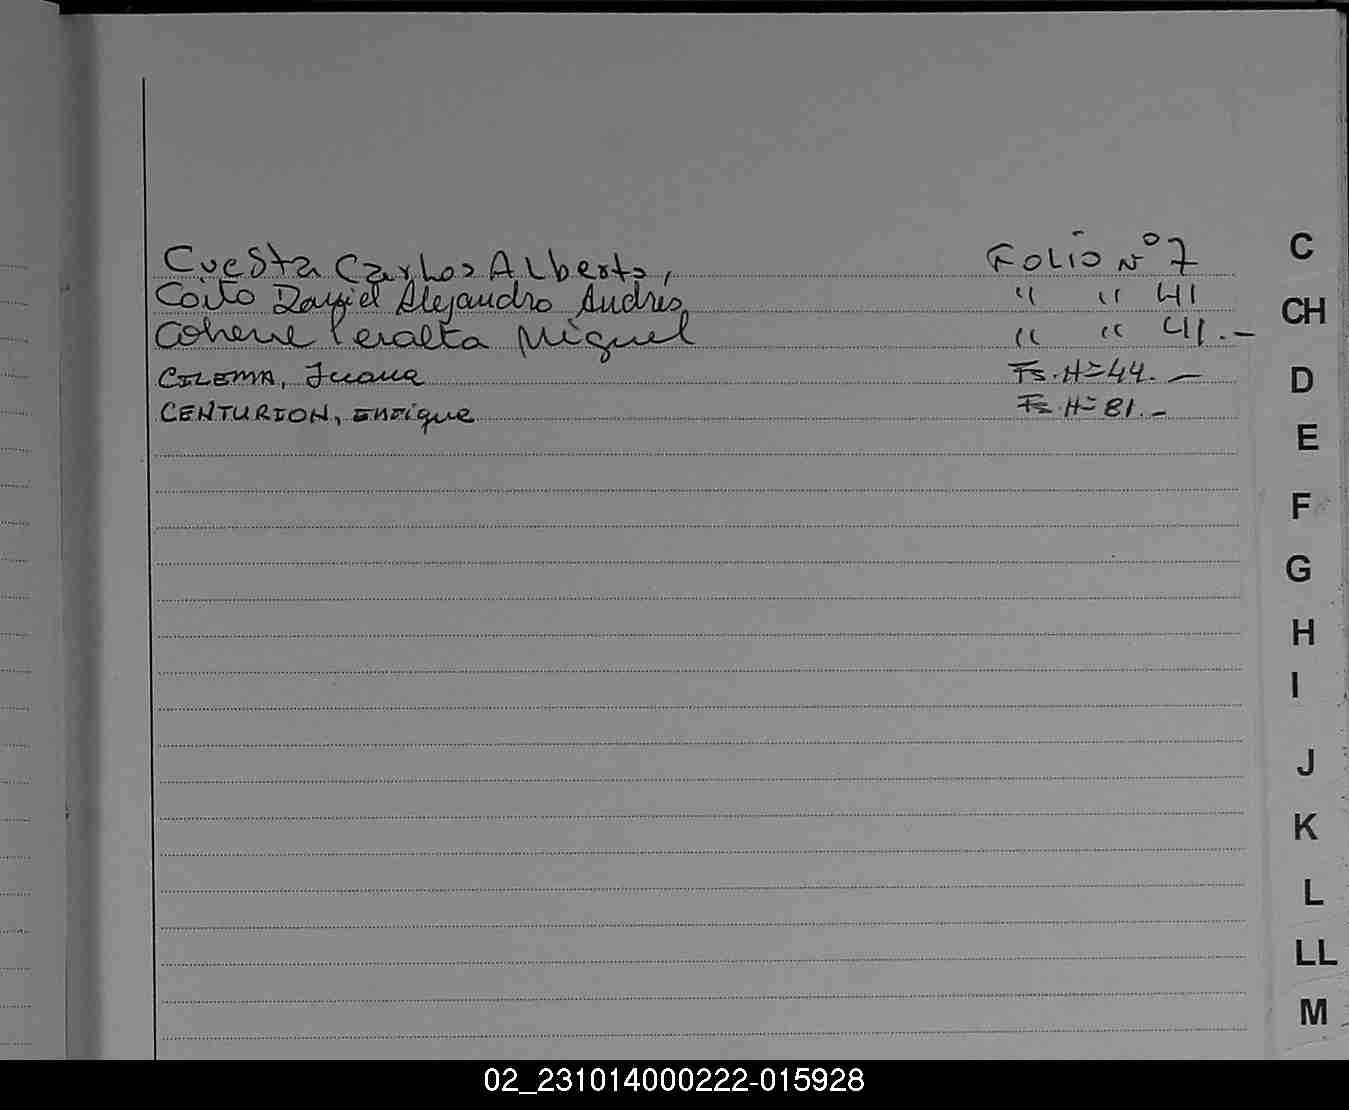 Cuesta Carlos Alberto, Folio Nº 7
Coito Daniel Alejandro Andrés " " 41
Cohene Peralta Miguel " " 41.-
CILEMA, Juana Fs. Nº 44.-
CENTURION, Enrique Fs. Nº 81.-
C
CH
D
E
F
G
H
I
J
K
L
LL
M
02_231014000222-015928